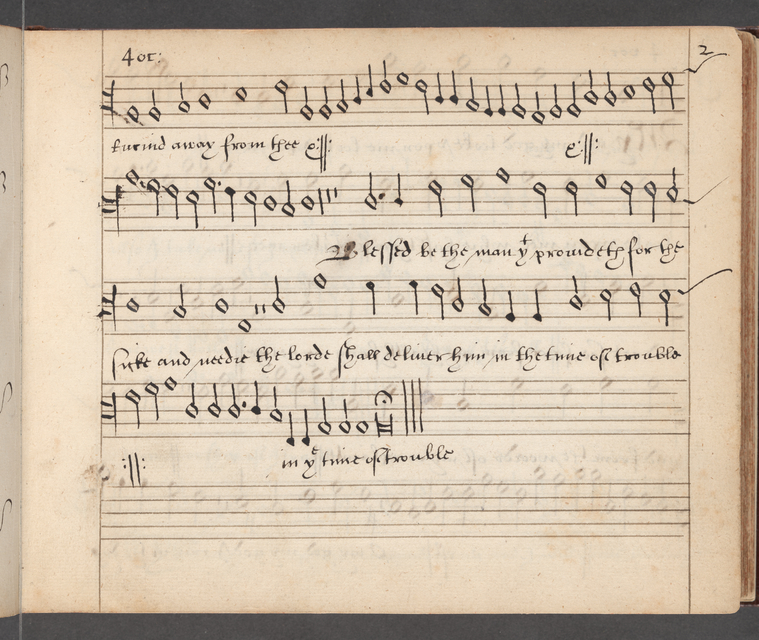 4 oc:
2
turnd away from thee &:||: &:||:
Blessed be the man yt provideth for the
sicke and needie the lorde shall deliver him in the time of trouble
:||: in ye time of trouble